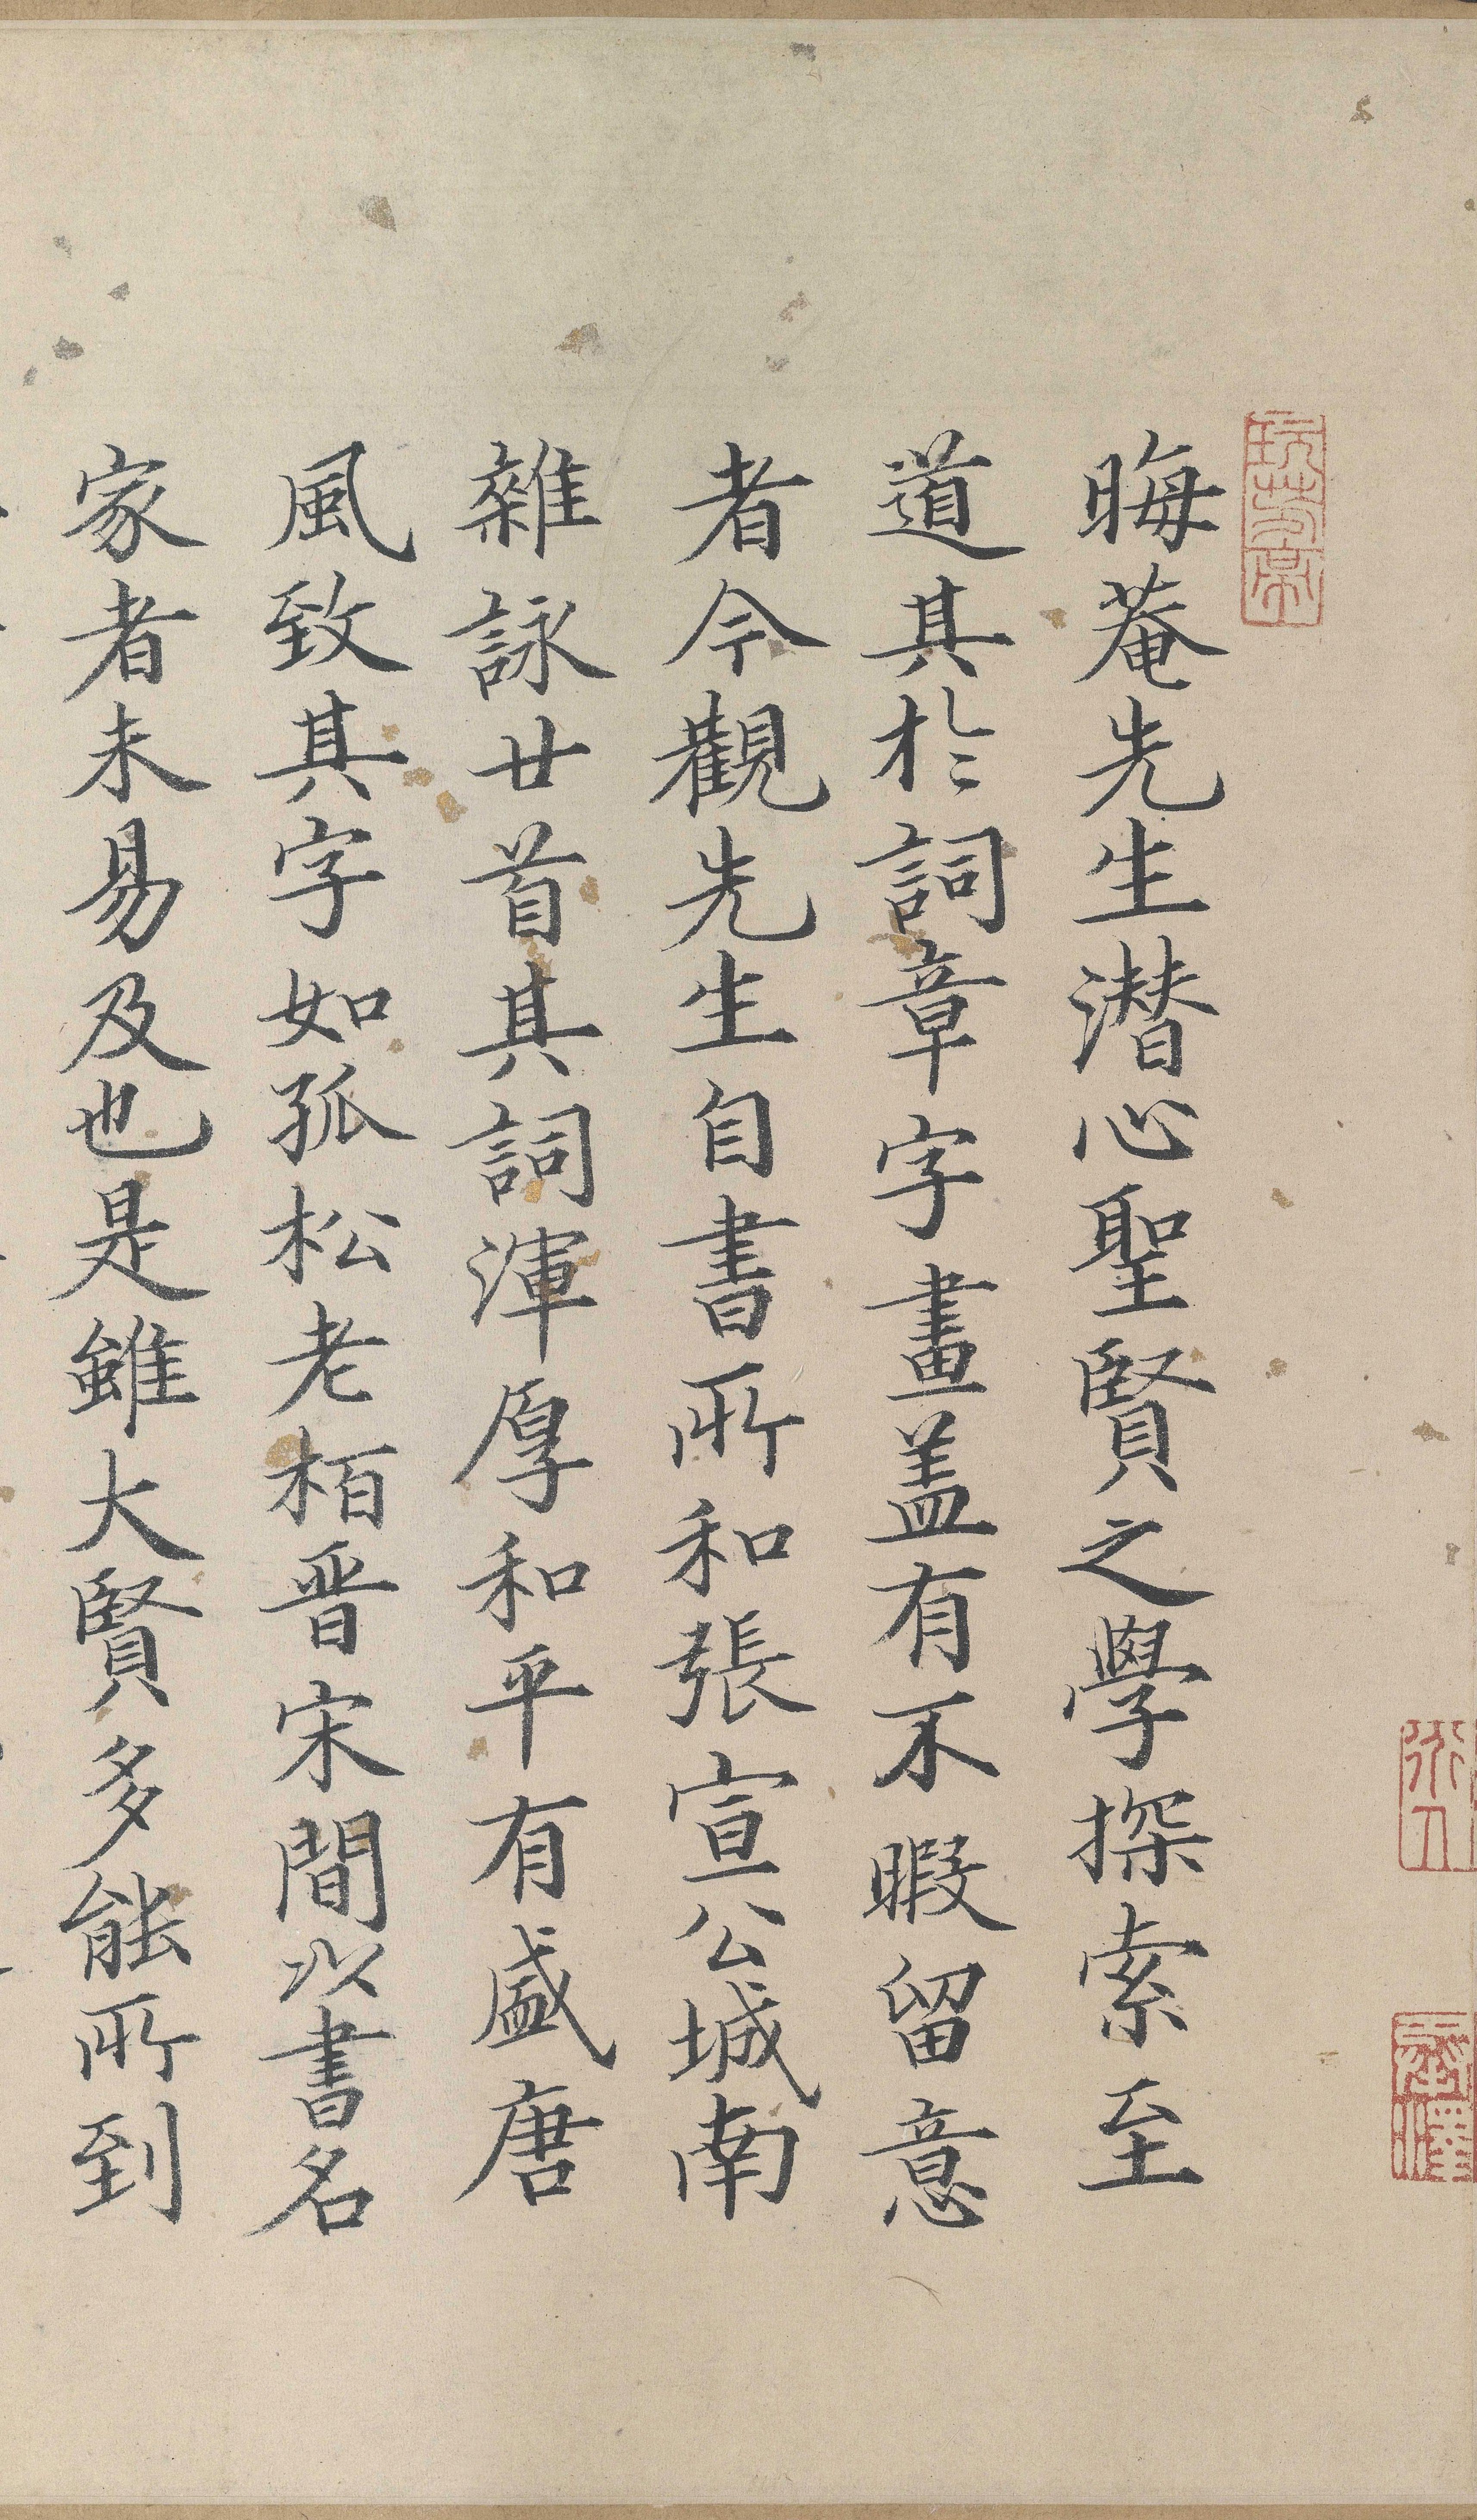 晦菴先生潛心聖賢之學探索至
道其於詞章字畫盖有不暇留意
者今觀先生自書所和張宣公城南
雜詠廿首其詞渾厚和平有盛唐
風致其字如孤松老栢晋宋間以書名
家者未易及也是雖大賢多能所到